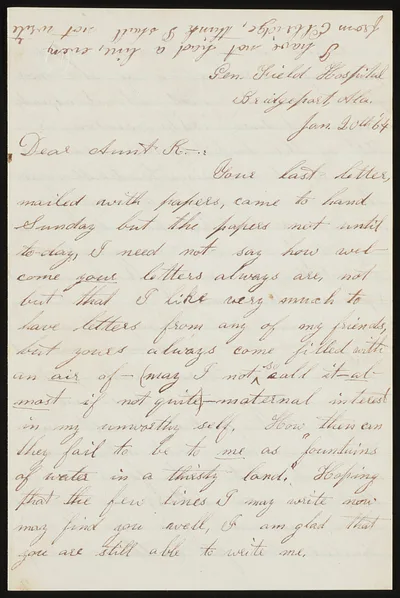 I have not had a line every
from Elbridge, think I shall not write
Gen. Field Hospital
Bridgeport Ala.
Jan. 20th 64
Dear Aunt K—:
Your last letter,
mailed with papers, came to hand
Sunday but the papers not until
to-day, I need not say how wel-
come your letters always are, not
but that I like very much to
have letters from any of my friends,
but yours always come filled with
an air of – (may I not so call it – al-
most if not quite) – maternal interest
in my unworthy self. How then can
they fail to be to me as "fountains
of water in a thirsty land." Hoping
that the few lines I may write now
may find you well, I am glad that
you are still able to write me.